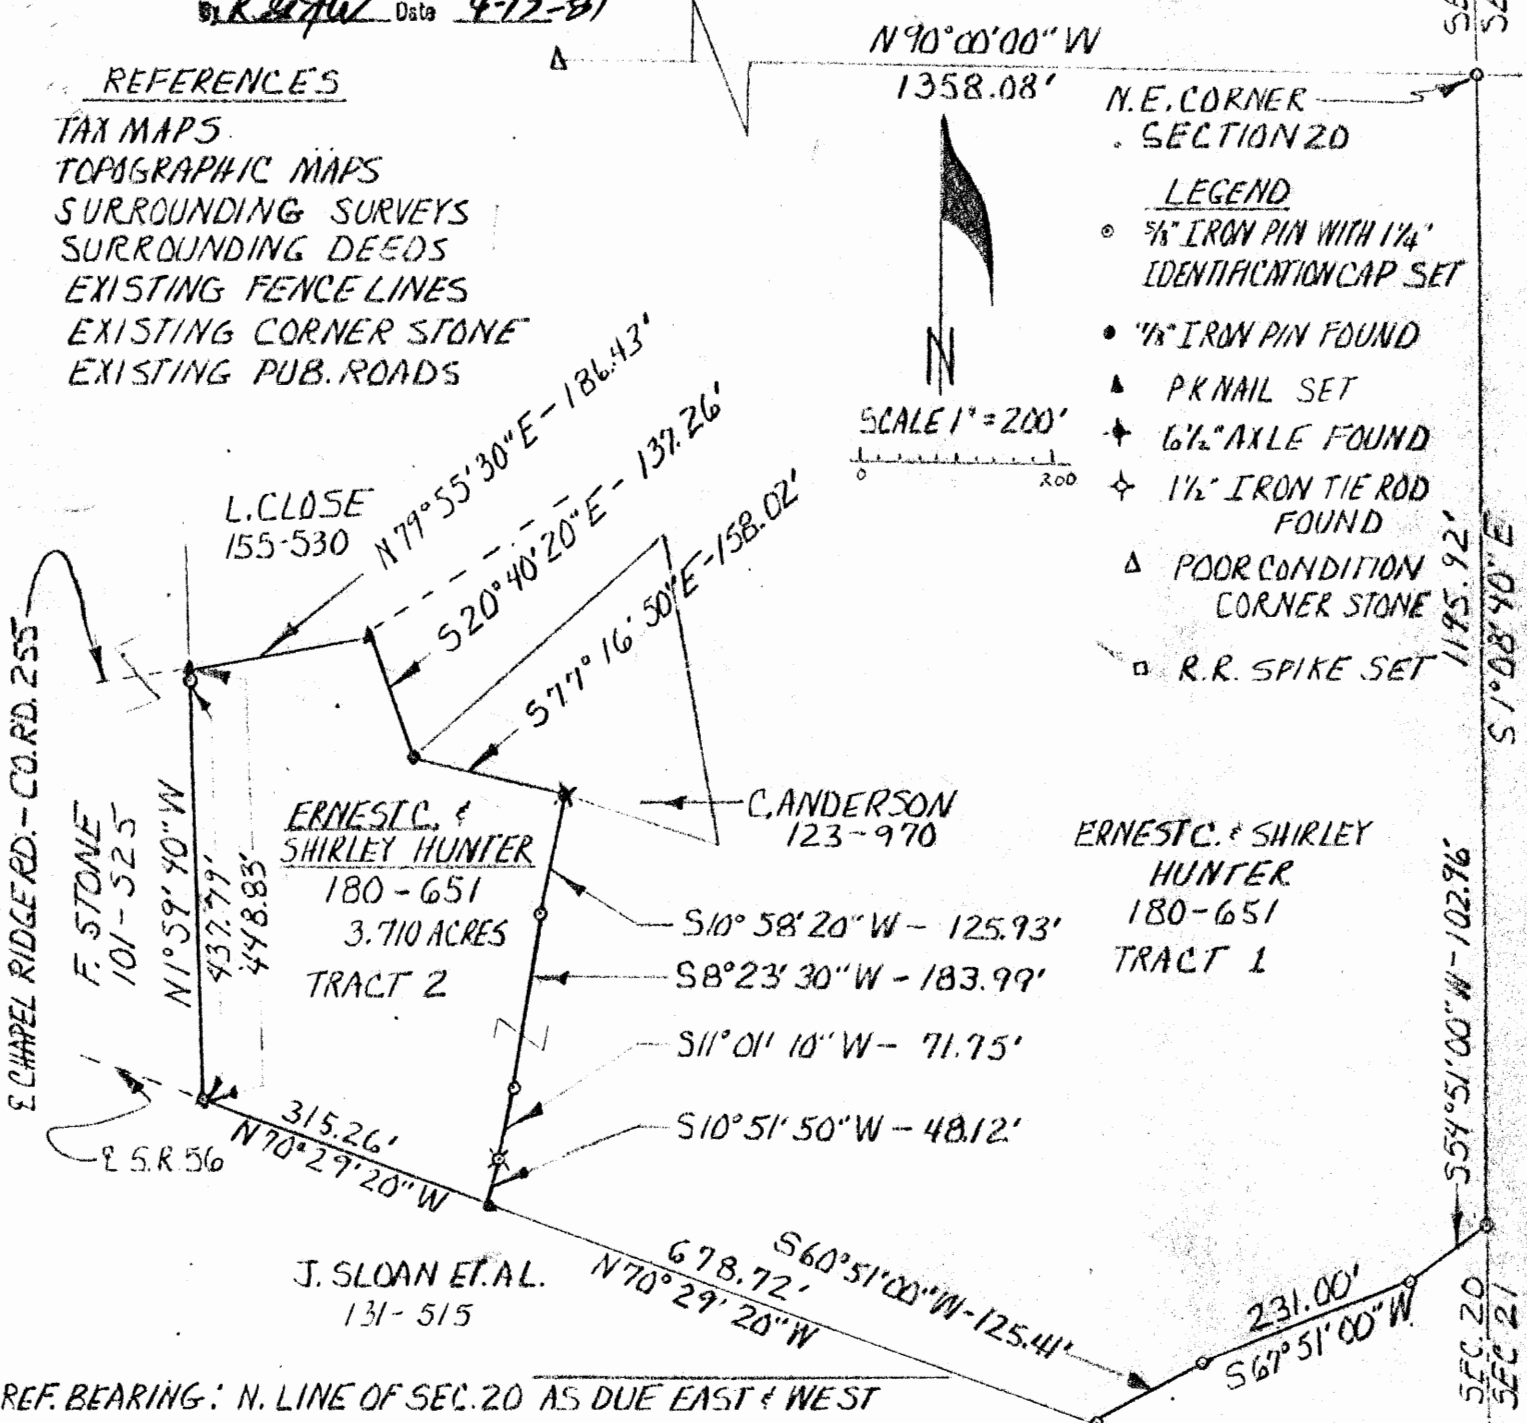 By Date 4-17-81
N 90°00'00" W
1358.08'
REFERENCES
TAX MAPS
TOPOGRAPHIC MAPS
SURROUNDING SURVEYS
SURROUNDING DEEDS
EXISTING FENCE LINES
EXISTING CORNER STONE
EXISTING PUB. ROADS
N.E. CORNER
SECTION 20
LEGEND
5/8" IRON PIN WITH 1 1/4"
IDENTIFICATION CAP SET
IRON PIN FOUND
PK NAIL SET
6 1/2" AXLE FOUND
1 1/2" IRON TIE ROD
FOUND
POOR CONDITION
CORNER STONE
R.R. SPIKE SET
N
SCALE 1" = 200'
0 200
L. CLOSE
155-530
N 79° 55' 30" E - 186.43'
S 20° 40' 20" E - 137.26'
S 77° 16' 50" E - 158.02'
℄ CHAPEL RIDGE RD. - CO. RD. 255
F. STONE
101-525
N 1° 59' 40" W
437.79'
448.83'
ERNEST C. &
SHIRLEY HUNTER
180-651
3.710 ACRES
TRACT 2
C. ANDERSON
123-970
ERNEST C. & SHIRLEY
HUNTER
180-651
TRACT 1
S 10° 58' 20" W - 125.93'
S 8° 23' 30" W - 183.99'
S 11° 01' 10" W - 71.75'
S 10° 51' 50" W - 48.12'
1195.92'
S 1° 08' 40" E
S 54° 51' 00" W - 102.96'
℄ S.R. 56
315.26'
N 70° 29' 20" W
J. SLOAN ET. AL.
131-515
678.72'
N 70° 29' 20" W
S 60° 51' 00" W - 125.41'
231.00'
S 67° 51' 00" W
SEC. 20
SEC 21
REF. BEARING: N. LINE OF SEC. 20 AS DUE EAST & WEST